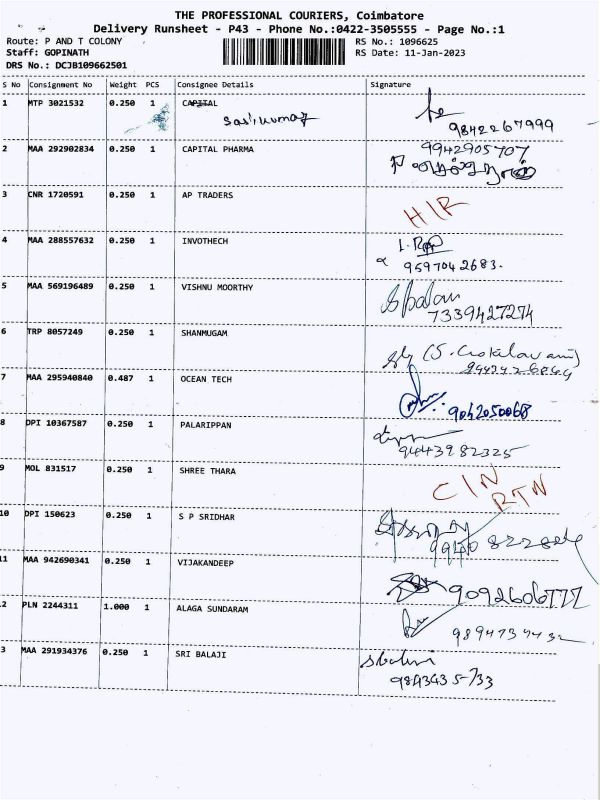 THE PROFESSIONAL COURIERS, Coimbatore
Delivery Runsheet - P43 - Phone No.:0422-3505555 - Page No.:1
Route: P AND T COLONY
Staff: GOPINATH
DRS No.: DCJB109662501
RS No.: 1096625
RS Date: 11-Jan-2023
S No Consignment No Weight PCS Consignee Details Signature
1 MTP 3021532 0.250 1 CAPITAL
Sasikumar
9842267999
2 MAA 292902834 0.250 1 CAPITAL PHARMA 9942905707
3 CNR 1720591 0.250 1 AP TRADERS
HIR
4 MAA 288557632 0.250 1 INVOTHECH
9597042683.
5 MAA 569196489 0.250 1 VISHNU MOORTHY
7339427274
6 TRP 8057249 0.250 1 SHANMUGAM
7 MAA 295940840 0.487 1 OCEAN TECH
9042050068
8 DPI 10367587 0.250 1 PALARIPPAN
9443982325
9 MOL 831517 0.250 1 SHREE THARA
CIN
RTN
10 DPI 150623 0.250 1 S P SRIDHAR
11 MAA 942690341 0.250 1 VIJAKANDEEP
2 PLN 2244311 1.000 1 ALAGA SUNDARAM
3 MAA 291934376 0.250 1 SRI BALAJI